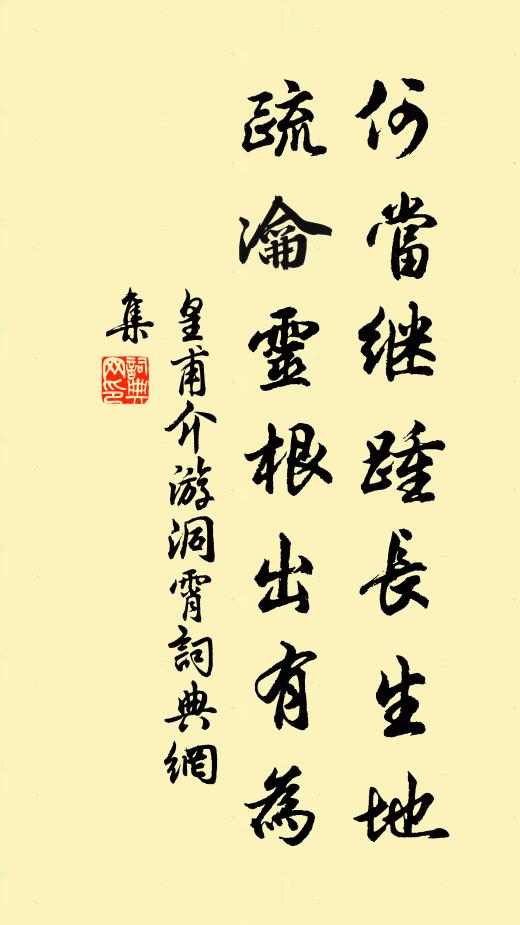 何當继踵長生地
疏瀹靈根出有為
皇甫介游洞霄詞典網
集
詞典网印